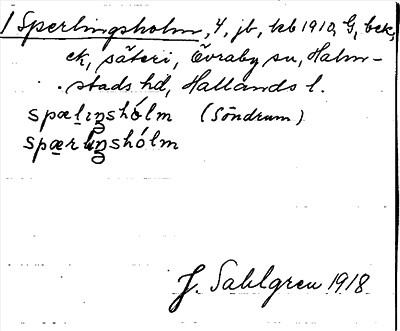 1 Sperlingsholm, 4, jb, kb 1910, G, bek,
ek, säteri, Övraby sn, Halm-
stads hd, Hallands l.
spælıŋshólm (Söndrum)
spærlıŋshólm
J. Sahlgren 1918